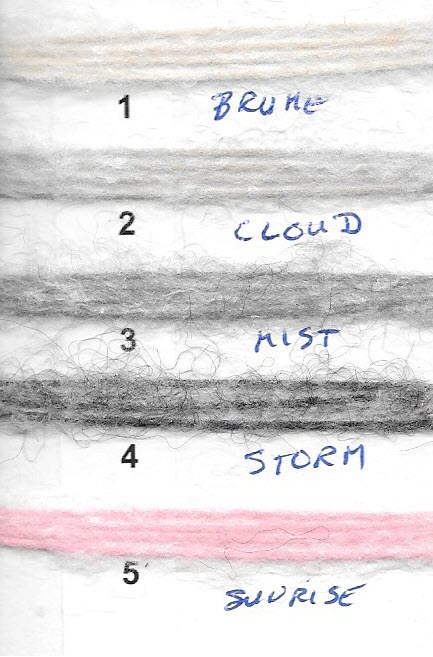 1 BRUME
2 CLOUD
3 MIST
4 STORM
5 SUNRISE